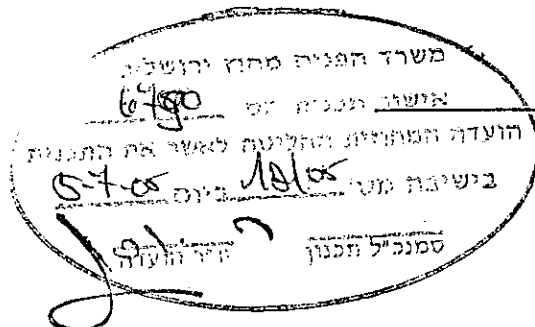 משרד הפנים מחוז ירושלים
אישור תכנית מס'
הועדה המחוזית החליטה לאשר את התכנית
בישיבה מס' ביום 5-7-05
סמנכ"ל תכנון יו"ר הועדה